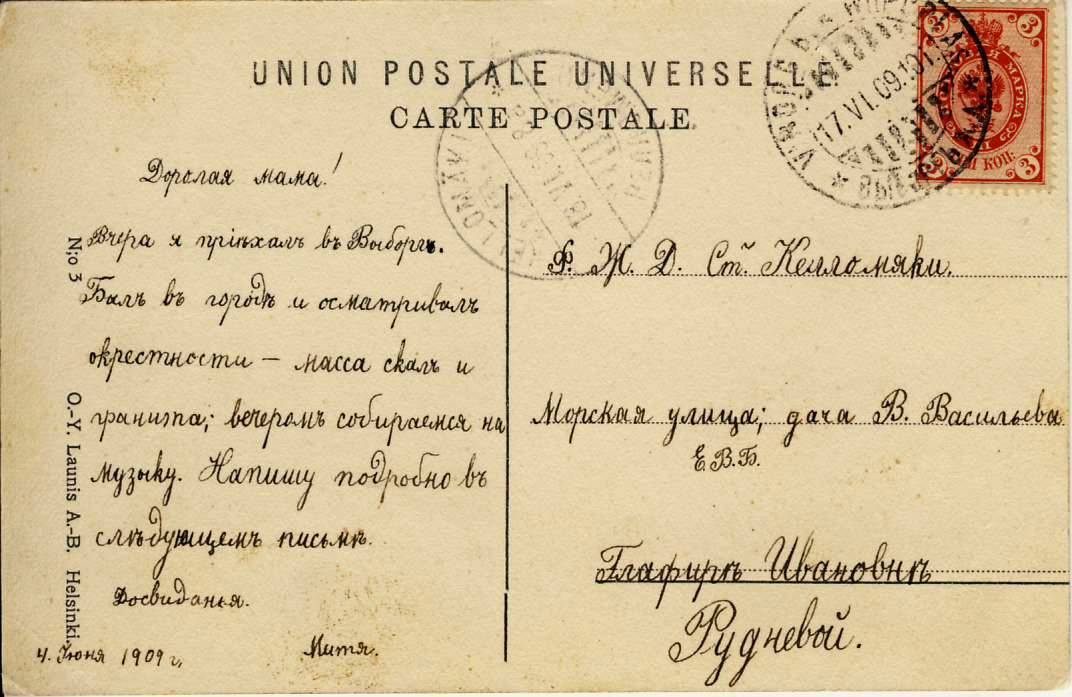 UNION POSTALE UNIVERSELLE.
CARTE POSTALE.
Дорогая мама!
Вчера я пріѣхалъ въ Выборгъ.
Былъ въ городѣ и осматривалъ
окрестности — масса скалъ и
гранита; вечеромъ собираемся на
музыку. Напишу подробно въ
слѣдующемъ письмѣ.
Досвиданья.
4. Іюня 1909 г.
Митя.
Ф. Ж. Д. Ст. Келломяки.
Морская улица; дача В. Васильева
Е.В.Б.
Глафирѣ Ивановнѣ
Рудневой.
N:o 3
O.-Y. Launis A.-B. Helsinki.
KELLOMÄKI
17.VI.09.
3
3
3
МАРКА
КОП.